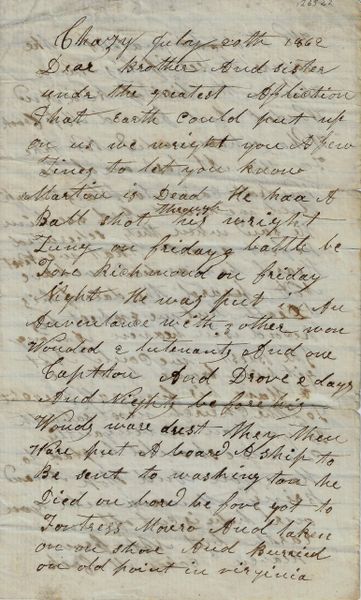 26522
Chazy July 20th 1862
Dear Brother And sister
undr the greatest Afliction
That earth could put up
on us we wright you A few
Lines to let you know
Martin is Dead He haa A
Ball shot through his wright
Lung on fridays battle be
Fore Richmond on friday
Night He was put in An
Anvenlance with 2 other won
Wonded 2 lutenants And one
Captton And Drove 2 days
And Nights before his
Wonds ware drest they then
Ware put A board A ship to
Be sent to washing ton he
Died on bord be fore got to
Fortress Monro And taken
on on shore And Burried
on old point in virginia